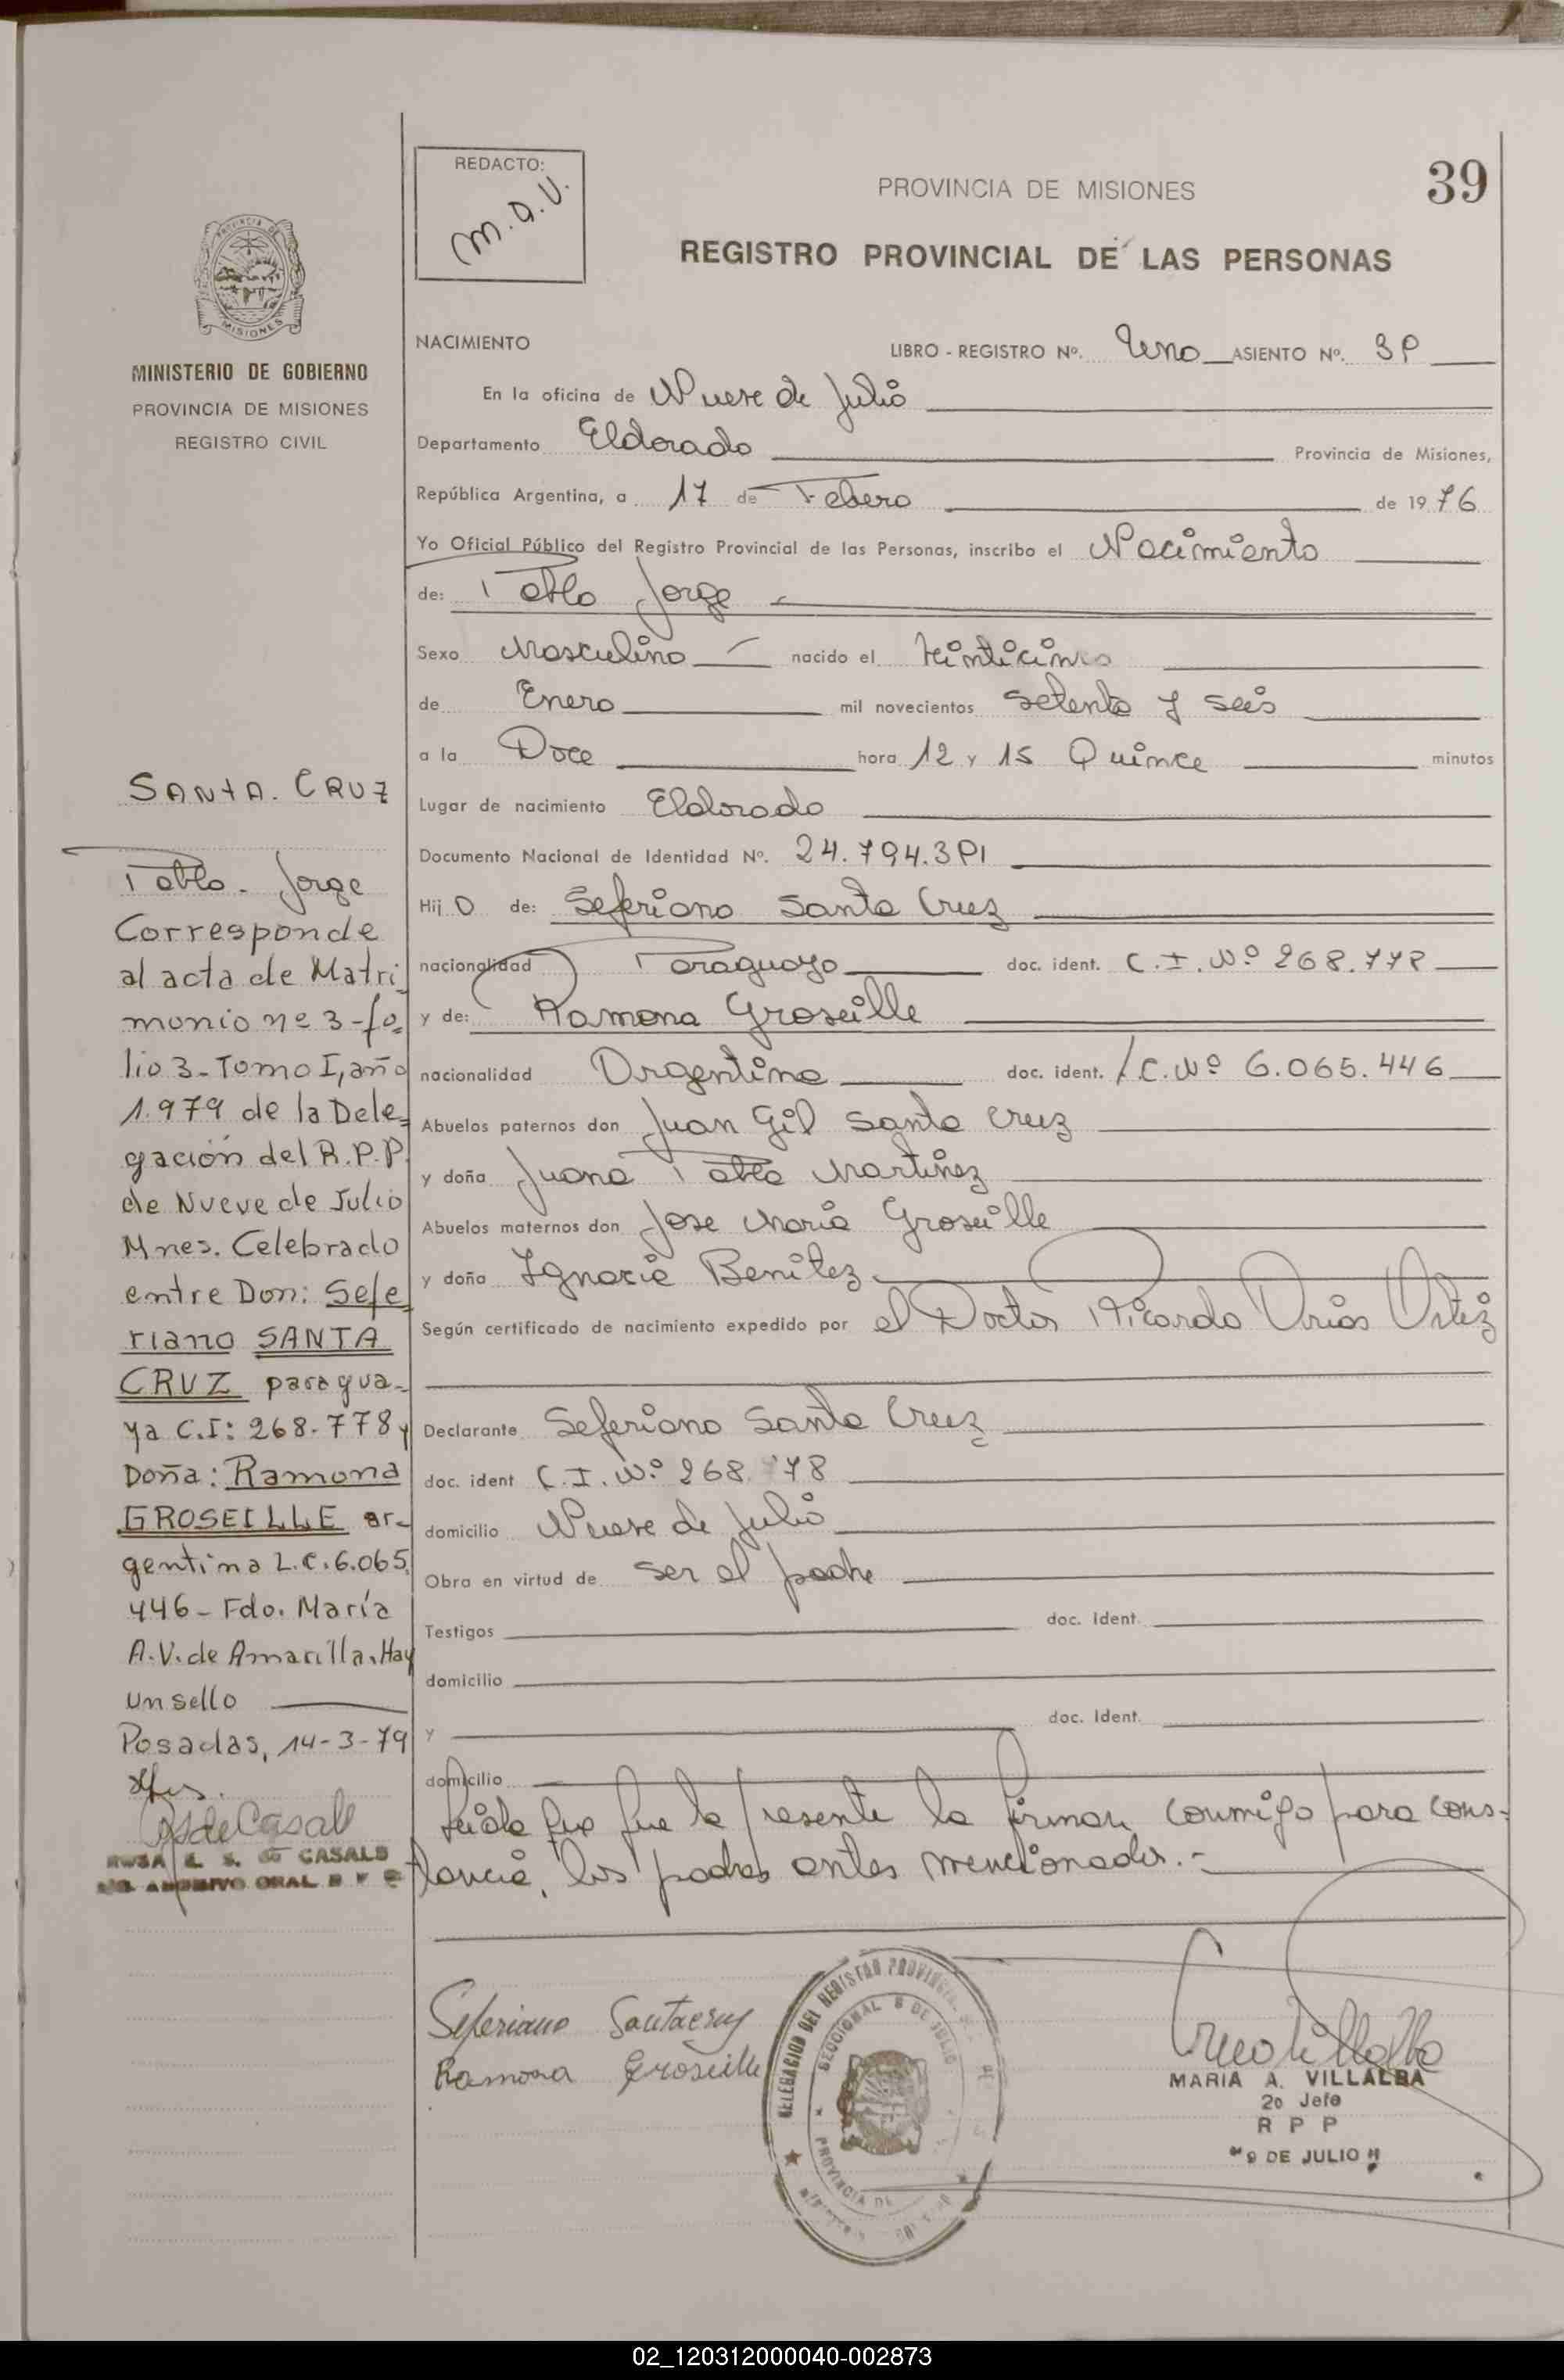 REDACTO:
M.A.V.
PROVINCIA DE MISIONES
39
REGISTRO PROVINCIAL DE LAS PERSONAS
MINISTERIO DE GOBIERNO
PROVINCIA DE MISIONES
REGISTRO CIVIL
NACIMIENTO
LIBRO - REGISTRO Nº. Uno ASIENTO Nº. 39
En la oficina de Nueve de Julio
Departamento Eldorado Provincia de Misiones,
República Argentina, a 17 de Febero de 1976
Yo Oficial Público del Registro Provincial de las Personas, inscribo el Nacimiento
de: Pablo Jorge
Sexo Masculino nacido el Veinticinco
de Enero mil novecientos setenta y seis
a la Doce hora 12 y 15 Quince minutos
Lugar de nacimiento Eldorado
Documento Nacional de Identidad Nº. 24.794.391
Hijo de: Seferiano Santa Cruz
nacionalidad Paraguayo doc. ident. C.I. Nº 268.778
y de: Ramona Groseille
nacionalidad Argentina doc. ident. L.C. Nº 6.065.446
Abuelos paternos don Juan Gil Santa Cruz
y doña Juana Pabla Martinez
Abuelos maternos don Jose Maria Groseille
y doña Ignacia Benitez
Según certificado de nacimiento expedido por el Doctor Ricardo Arias Ortiz
Declarante Seferiano Santa Cruz
doc. ident C.I. Nº 268. 78
domicilio Nueve de Julio
Obra en virtud de ser el padre
Testigos doc. Ident.
domicilio
y doc. Ident.
domicilio
Leida que fue la presente la firman conmigo para cons-
tancia, los padres antes mencionados.-
SANTA. CRUZ
Pablo. Jorge
Corresponde
al acta de Matri
monio nº 3-fo=
lio 3-Tomo I, año
1.979 de la Dele=
gación del R.P.P.
de Nueve de Julio
Mnes. Celebrado
entre Don: Sefe=
riano SANTA
CRUZ paragua-
ya C.I: 268-778 y
Doña: Ramona
GROSEILLE ar-
gentina L.C. 6.065.
446- Fdo. María
A.V. de Amarilla. Hay
un sello
Posadas, 14-3-79
RSdeCasals
ROSA E. S. de CASALS
ARCHIVO GRAL R P P
Seferiano Santacruz
Ramona Groseille
DELEGACION DEL REGISTRO PROVINCIAL
SECCIONAL 9 DE JULIO
PROVINCIA DE
MARIA A. VILLALBA
2o Jefe
R P P
"9 DE JULIO"
02_120312000040-002873